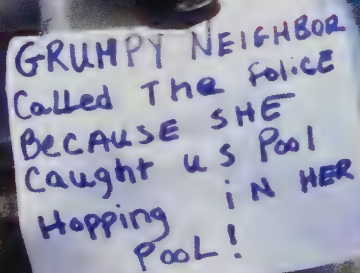 GRUMPY NEIGHBOR
Called The Police
BECAUSE SHE
Caught us Pool
Hopping iN HER
POOL!